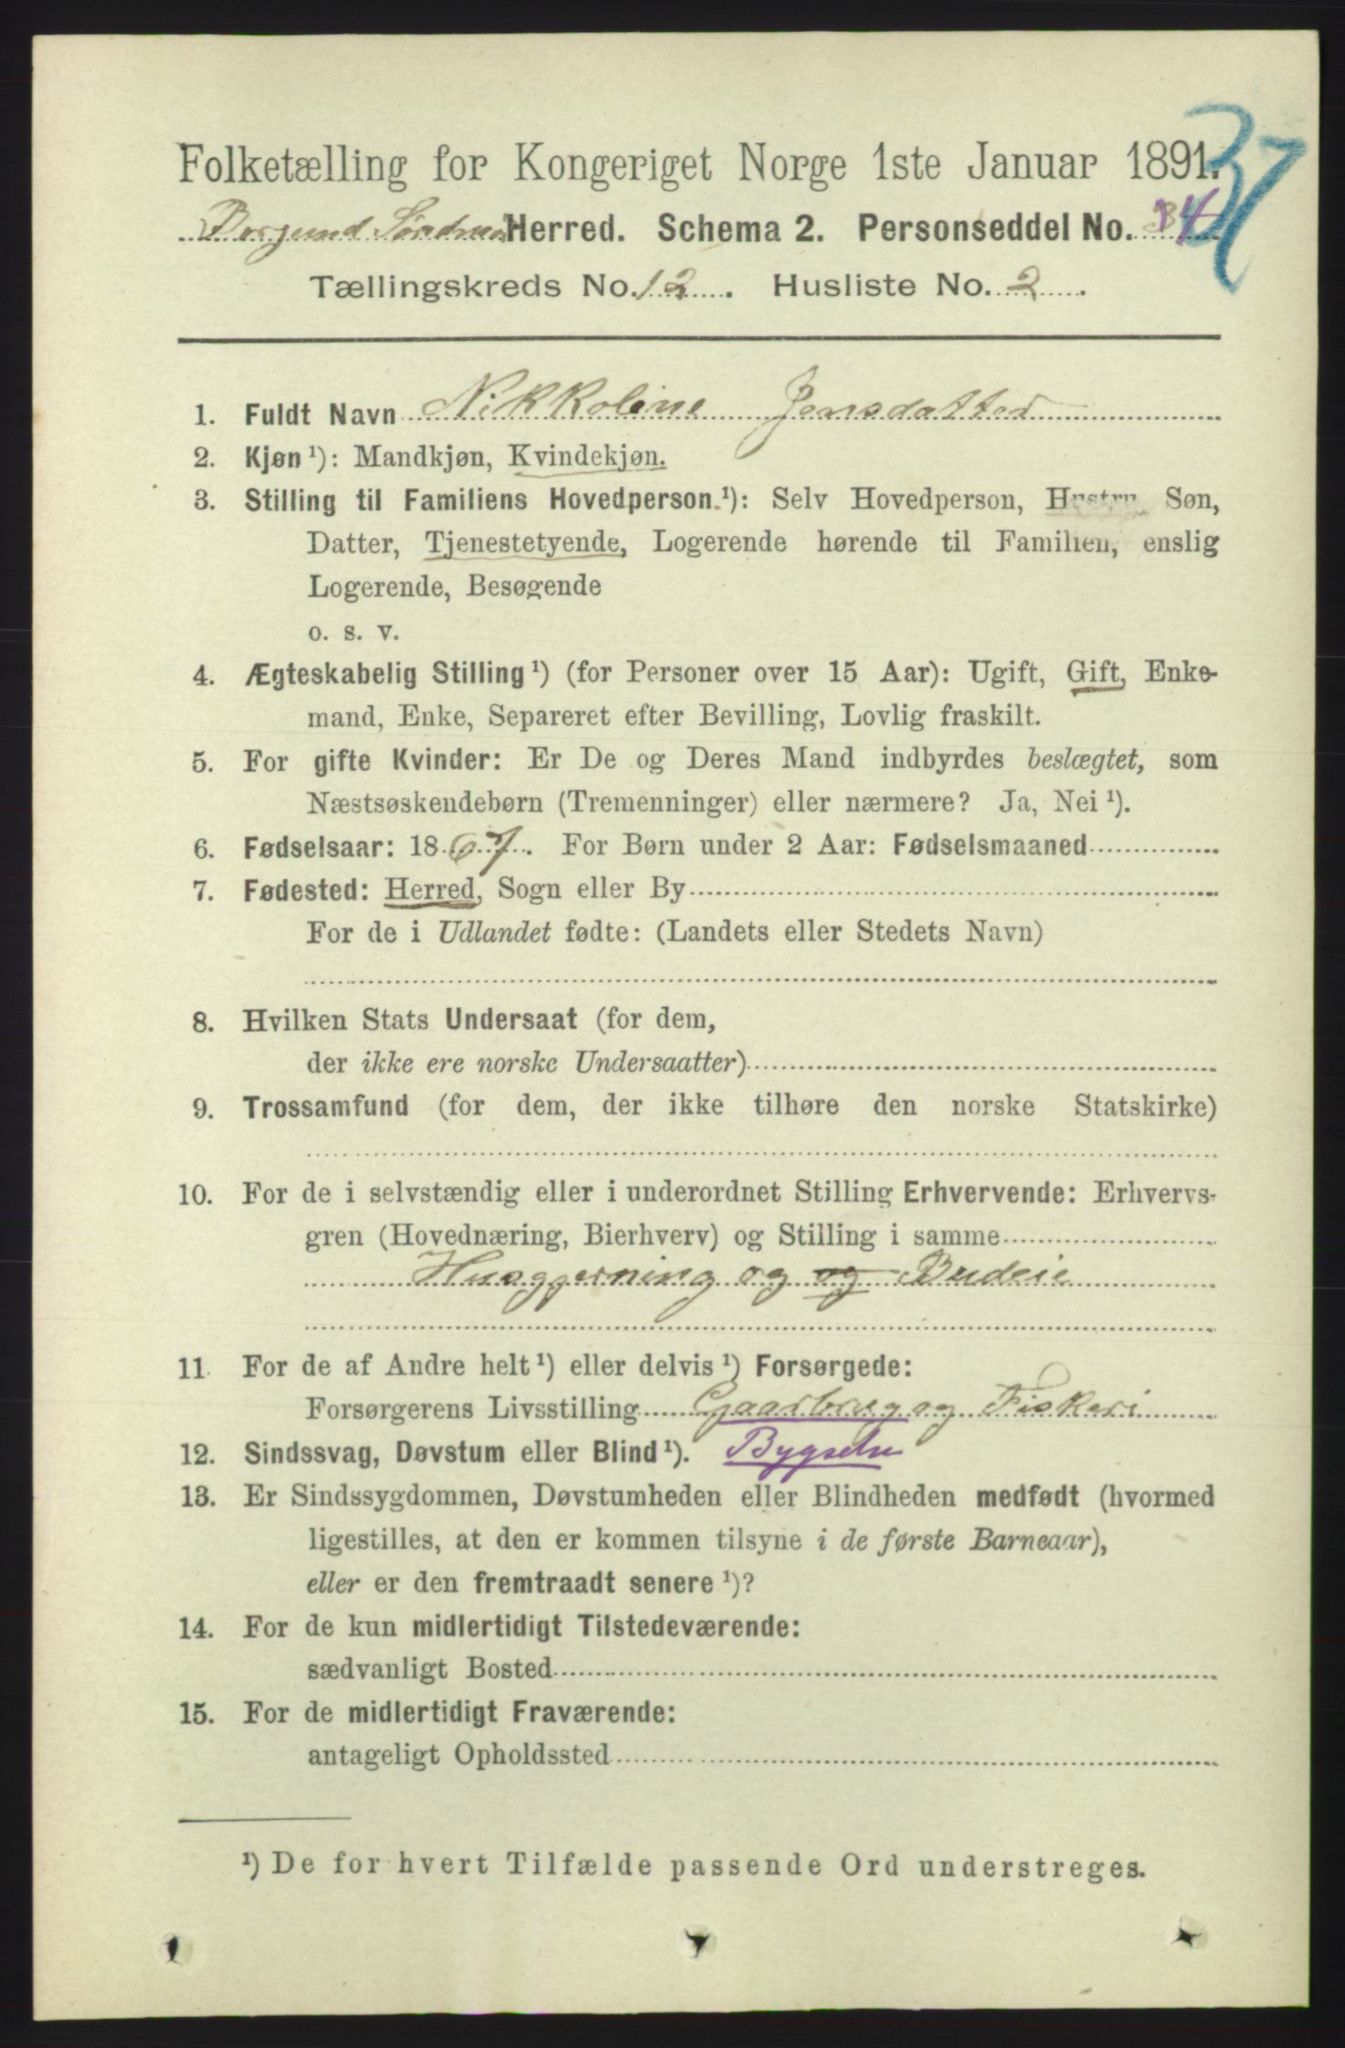 Folketælling for Kongeriget Norge 1ste Januar 1891.
37
Borgund Søndmør Herred. Schema 2. Personseddel No. 34
Tællingskreds No. 12. Husliste No. 2.
1. Fuldt Navn Nikkoline Jensdatter
2. Kjøn ¹): Mandkjøn, Kvindekjøn.
3. Stilling til Familiens Hovedperson ¹): Selv Hovedperson, Hustru, Søn,
Datter, Tjenestetyende, Logerende hørende til Familien, enslig
Logerende, Besøgende
o. s. v.
4. Ægteskabelig Stilling ¹) (for Personer over 15 Aar): Ugift, Gift, Enke-
mand, Enke, Separeret efter Bevilling, Lovlig fraskilt.
5. For gifte Kvinder: Er De og Deres Mand indbyrdes beslægtet, som
Næstsøskendebørn (Tremenninger) eller nærmere? Ja, Nei ¹).
6. Fødselsaar: 1867. For Børn under 2 Aar: Fødselsmaaned
7. Fødested: Herred, Sogn eller By
For de i Udlandet fødte: (Landets eller Stedets Navn)
8. Hvilken Stats Undersaat (for dem,
der ikke ere norske Undersaatter)
9. Trossamfund (for dem, der ikke tilhøre den norske Statskirke)
10. For de i selvstændig eller i underordnet Stilling Erhvervende: Erhvervs-
gren (Hovednæring, Bierhverv) og Stilling i samme
Husgjerning og og Budeie
11. For de af Andre helt ¹) eller delvis ¹) Forsørgede:
Forsørgerens Livsstilling Gaarbrug og Fiskeri
12. Sindssvag, Døvstum eller Blind ¹). Bygseln
13. Er Sindssygdommen, Døvstumheden eller Blindheden medfødt (hvormed
ligestilles, at den er kommen tilsyne i de første Barneaar),
eller er den fremtraadt senere ¹)?
14. For de kun midlertidigt Tilstedeværende:
sædvanligt Bosted
15. For de midlertidigt Fraværende:
antageligt Opholdssted
¹) De for hvert Tilfælde passende Ord understreges.